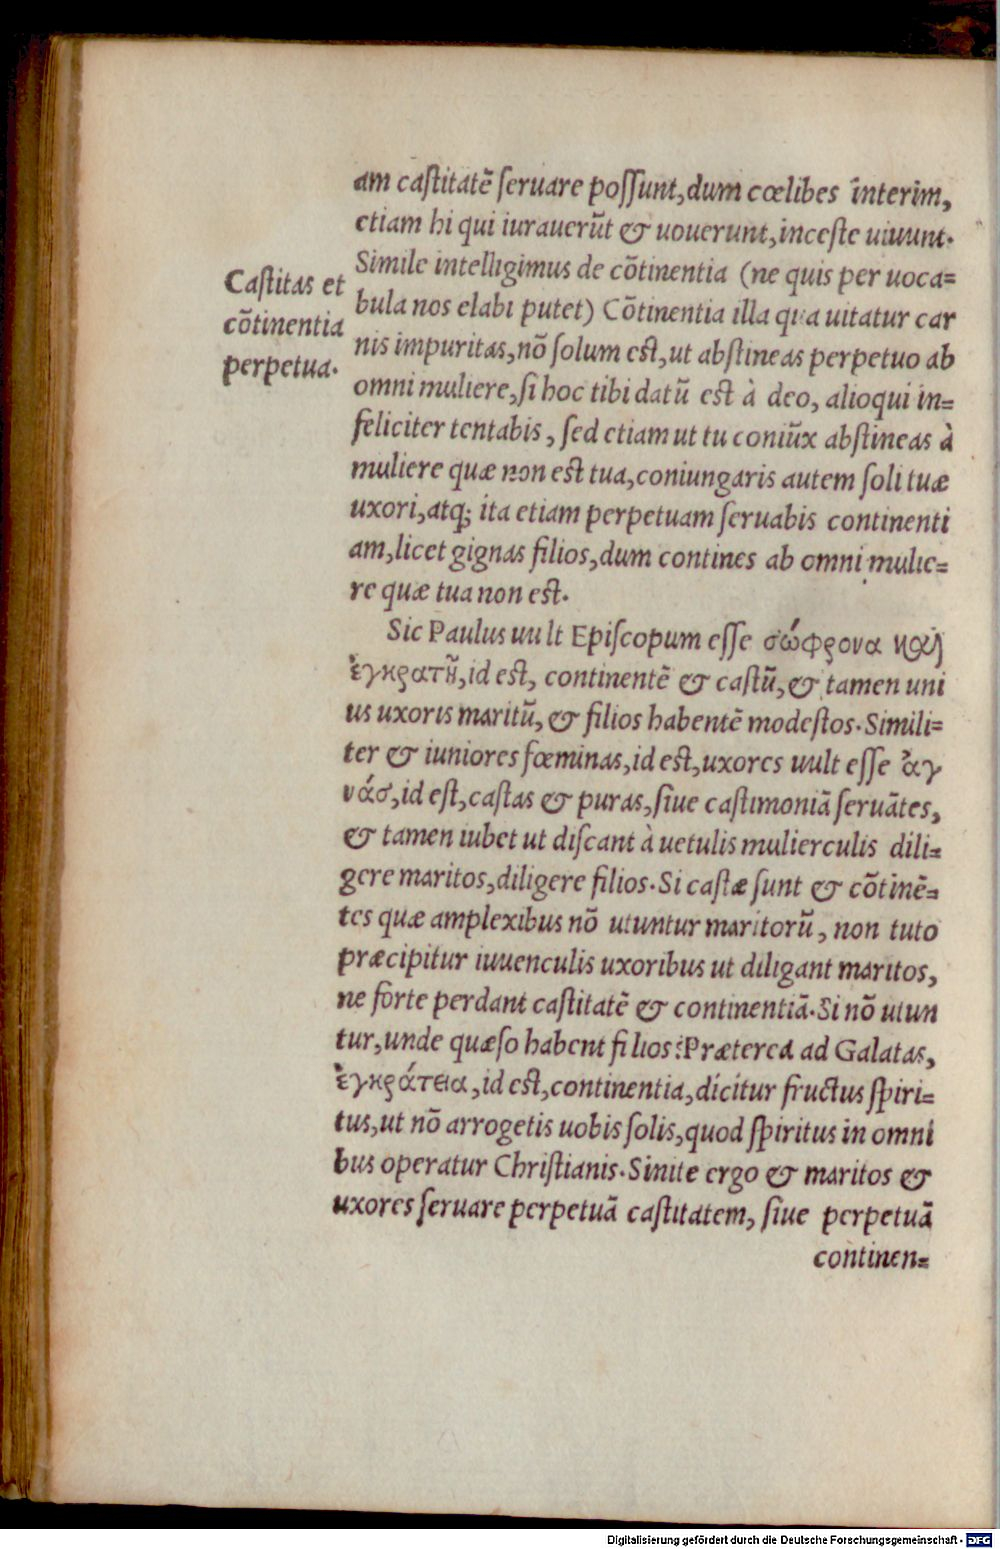 am caſtitatẽ ſeruare poſſunt, dum cœlibes interim,
etiam hi qui iurauerũt & uouerunt, inceſte uiuunt.
Simile intelligimus de cõtinentia (ne quis per uoca=
bula nos elabi putet) Cõtinentia illa qua uitatur car
nis impuritas, nõ ſolum eſt, ut abſtineas perpetuo ab
omni muliere, ſi hoc tibi datũ est à deo, alioqui in=
feliciter tentabis, ſed etiam ut tu coniũx abſtineas à
muliere quæ non est tua, coniungaris autem ſoli tuæ
uxori, atq; ita etiam perpetuam ſeruabis continenti
am, licet gignas filios, dum contines ab omni mulie=
re quæ tua non est.
Castitas et
cõtinentia
perpetua.
Sic Paulus uult Epiſcopum eſſe σώφρονα καὶ
ἐγκρατῆ, id est, continentẽ & caſtũ, & tamen uni
us uxoris maritũ, & filios habentẽ modeſtos. Simili=
ter & iuniores fœminas, id est, uxores uult eſſe ἁγ
νάσ, id eſt, caſtas & puras, ſiue caſtimoniã ſeruãtes,
& tamen iubet ut diſcant à uetulis mulierculis dili=
gere maritos, diligere filios. Si caſtæ ſunt & cõtinẽ=
tes quæ amplexibus nõ utuntur maritorũ, non tuto
præcipitur iuuenculis uxoribus ut diligant maritos,
ne forte perdant caſtitatẽ & continentiã. Si nõ utun
tur, unde quæſo habent filios? Præterea ad Galatas,
ἐγκράτεια, id eſt, continentia, dicitur fructus ſpiri=
tus, ut nõ arrogetis uobis ſolis, quod ſpiritus in omni
bus operatur Chriſtianis. Sinite ergo & maritos &
uxores ſeruare perpetuã caſtitatem, ſiue perpetuã
continen=
Digitalisierung gefördert durch die Deutsche Forschungsgemeinschaft - DFG